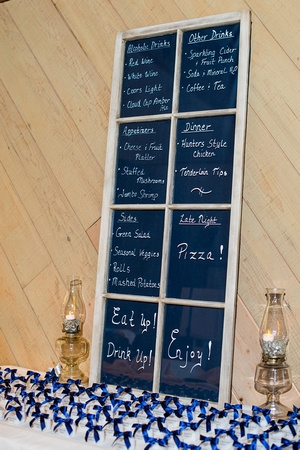 Alcoholic Drinks
• Red Wine
• White Wine
• Coors Light
• Cloud Cap Amber
Ale
Other Drinks
• Sparkling Cider
& Fruit Punch
• Soda & Mineral H2O
• Coffee & Tea
Appetizers
• Cheese & Fruit
Platter
• Stuffed
Mushrooms
• Jumbo Shrimp
Dinner
• Hunters Style
Chicken
• Tenderloin Tips
Sides
• Green Salad
• Seasonal Veggies
• Rolls
• Mashed Potatoes
Late Night
Pizza!
Eat Up!
Drink Up!
Enjoy!